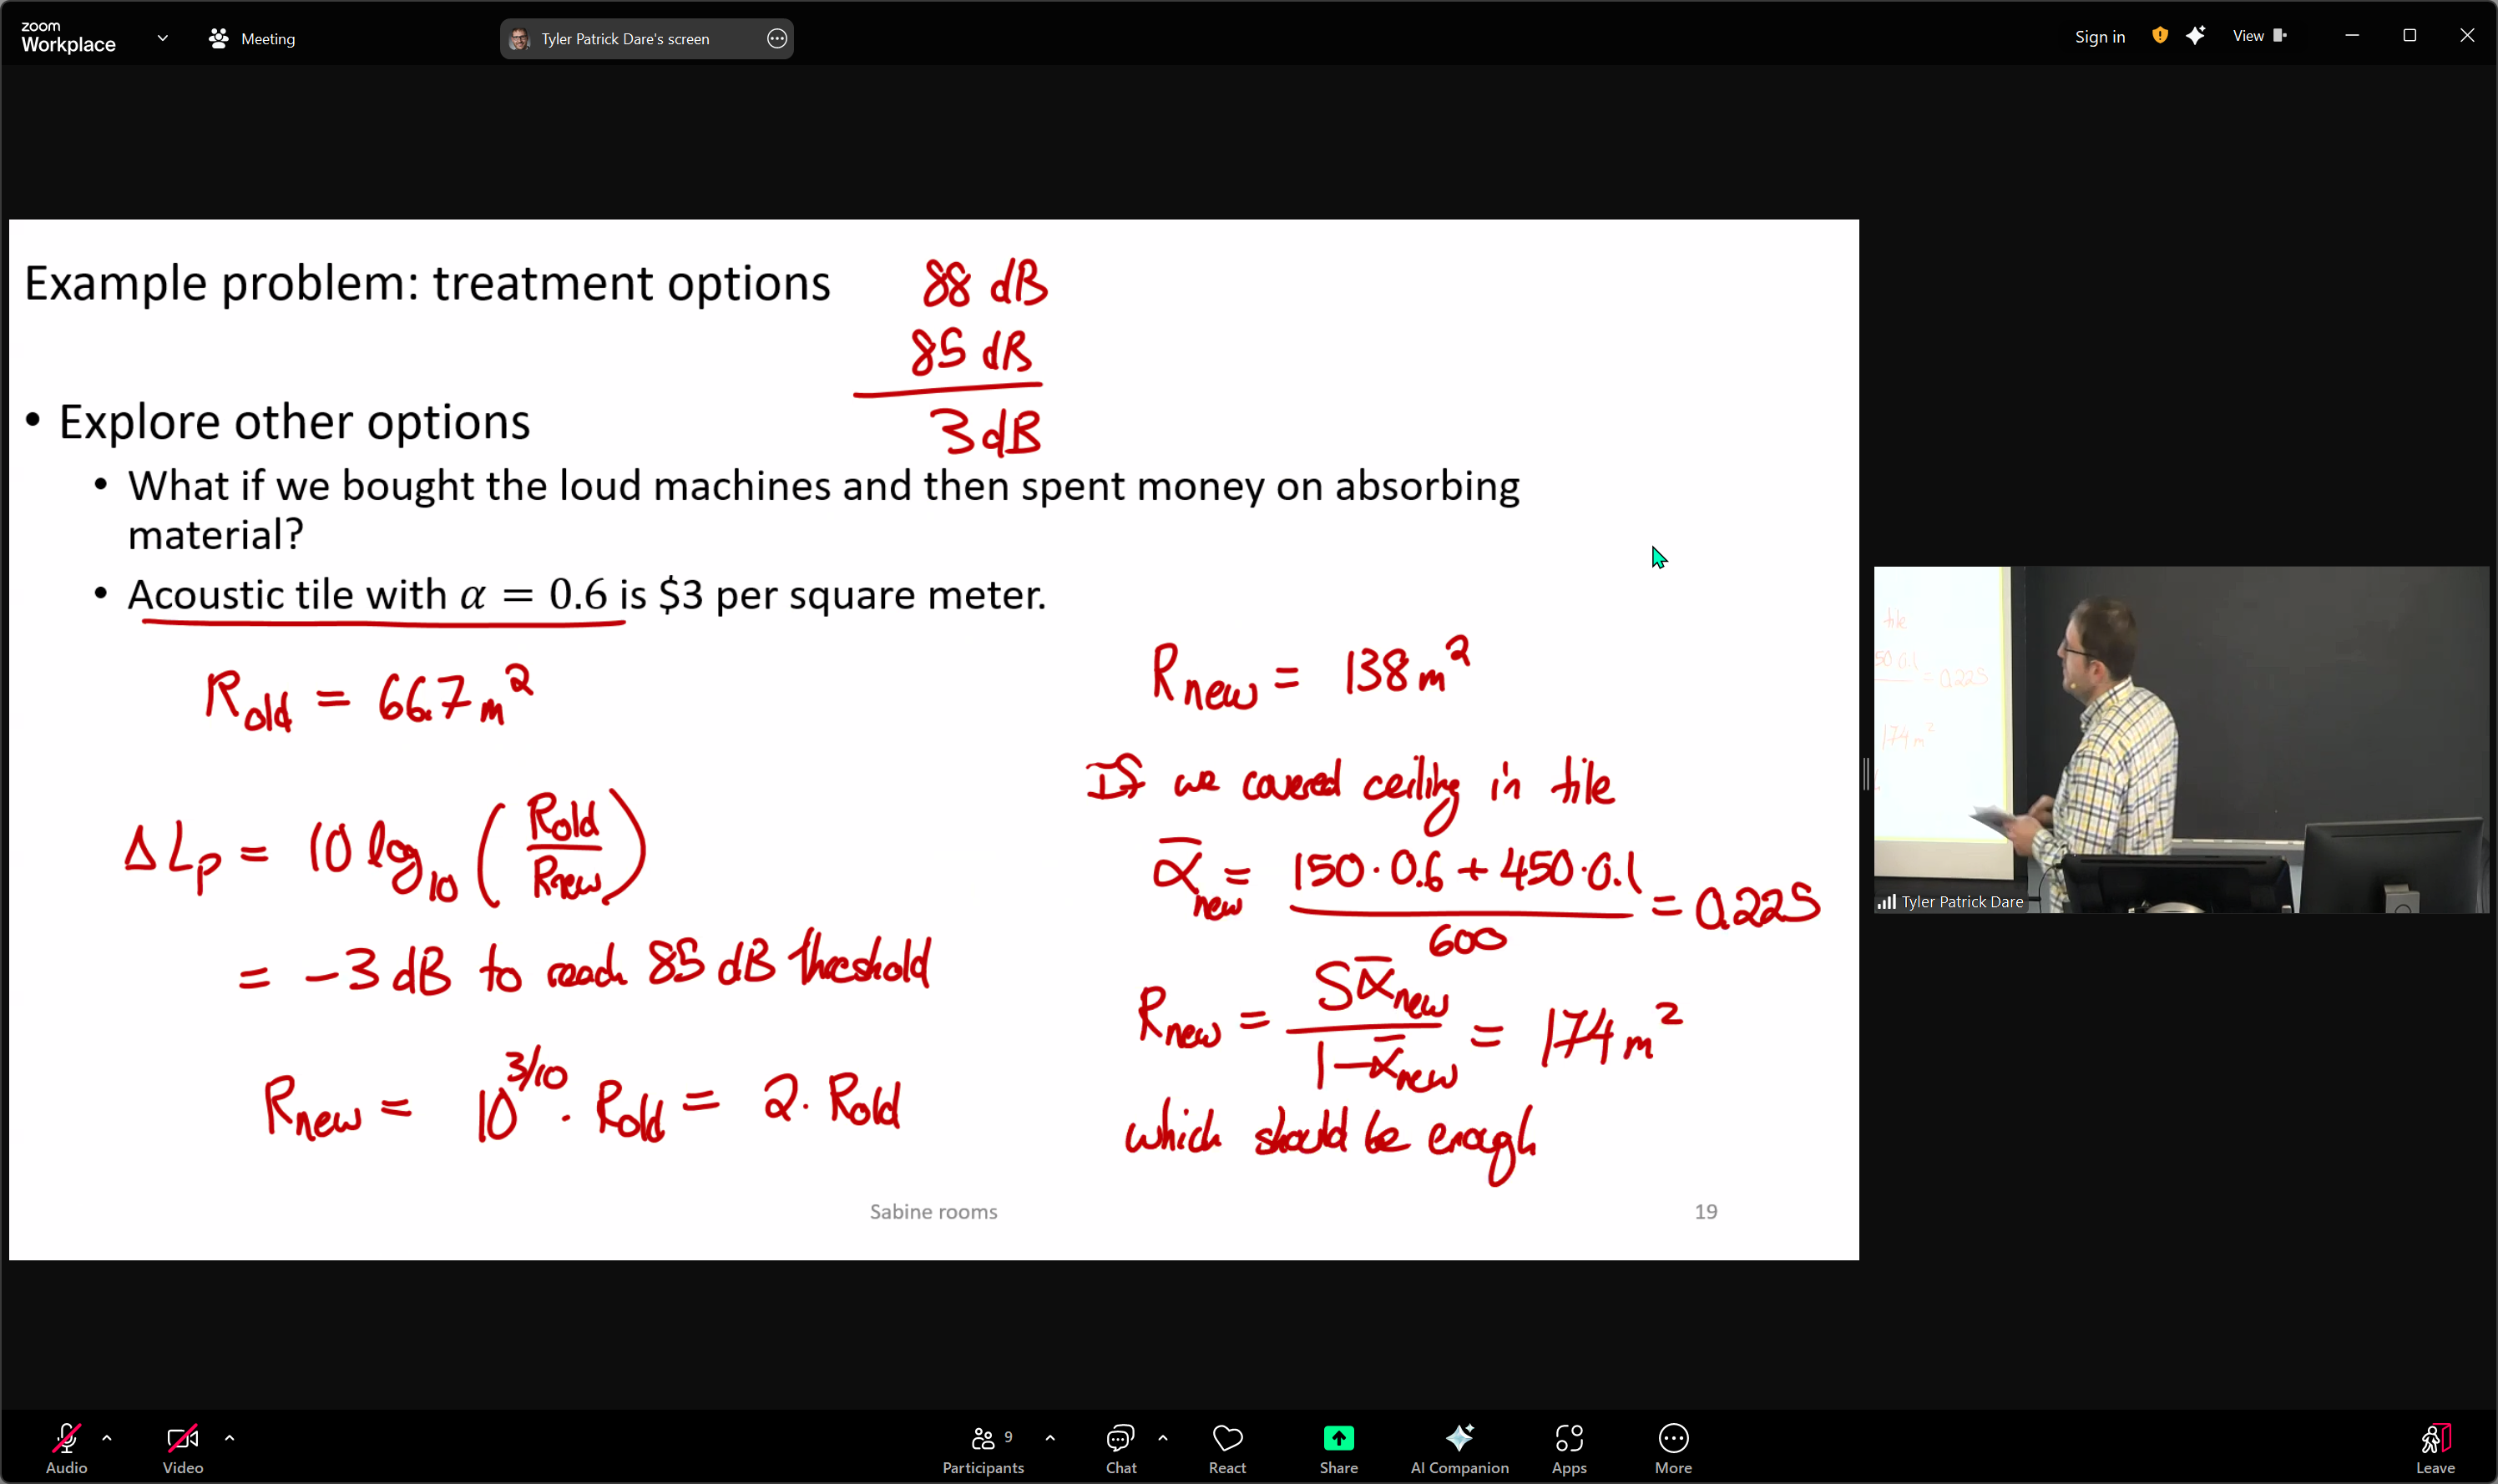 zoom
Workplace
Meeting
Tyler Patrick Dare's screen
Sign in
View
Example problem: treatment options
88 dB
85 dB
3 dB
• Explore other options
• What if we bought the loud machines and then spent money on absorbing
material?
• Acoustic tile with α = 0.6 is $3 per square meter.
R_old = 66.7 m²
ΔL_p = 10 log₁₀ (R_old / R_new)
= −3 dB to reach 85 dB threshold
R_new = 10^(3/10) · R_old = 2 · R_old
R_new = 138 m²
If we covered ceiling in tile
ᾱ_new = (150 · 0.6 + 450 · 0.1) / 600 = 0.225
R_new = Sᾱ_new / (1 − ᾱ_new) = 174 m²
which should be enough
Sabine rooms
19
tile
50 0.1
= 0.225
174 m²
Tyler Patrick Dare
Audio
Video
9
Participants
Chat
React
Share
AI Companion
Apps
More
Leave